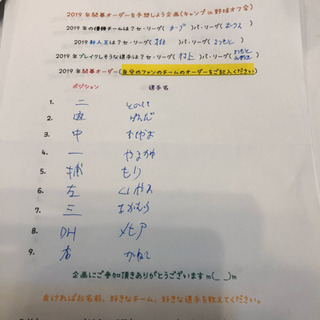 2019年開幕オーダーを予想しよう企画(キャンプin野球オフ会)
2019年の優勝チームは?セ・リーグ( )パ・リーグ( )
2019年新人王は?セ・リーグ( )パ・リーグ( )
2019年ブレイクしそうな選手は?セ・リーグ(村上)パ・リーグ( )
2019年開幕オーダー(自分のファンのチームのオーダーをご記入ください)
ポジション 選手名
1. 二 とのさき
2. 遊 げんだ
3. 中 あきやま
4. 一 やまかわ
5. 捕 もり
6. 左 くりやま
7. 三 なかむら
8. DH メヒア
9. 右 かねこ
企画にご参加頂きありがとうございます m(_ _)m
良ければお名前、好きなチーム、好きな選手を教えてください。